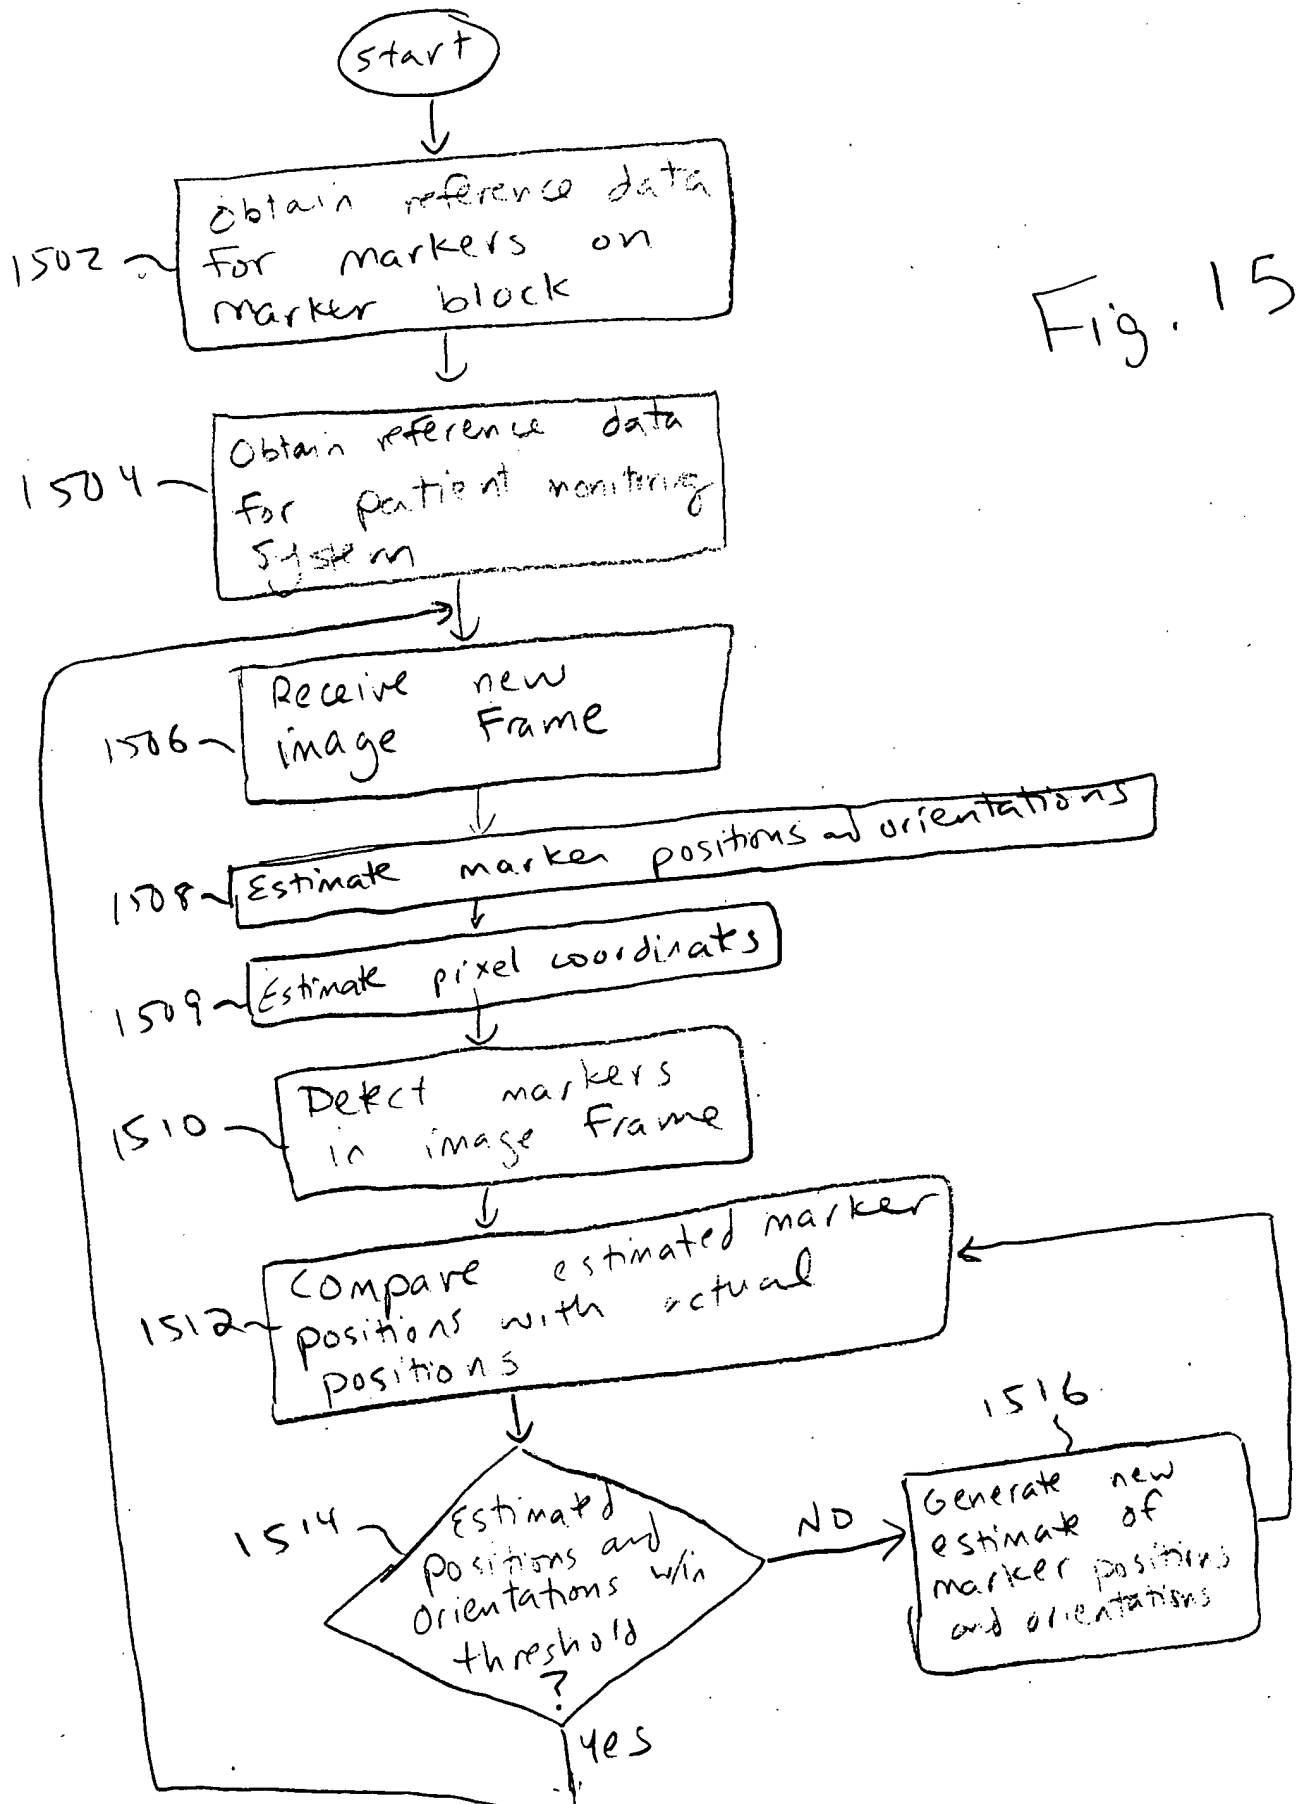 start
1502
Obtain reference data
for markers on
marker block
Fig. 15
1504
Obtain reference data
for patient monitoring
system
1506
Receive new
image Frame
1508
Estimate marker positions and orientations
1509
Estimate pixel coordinates
1510
Detect markers
in image Frame
1512
Compare estimated marker
positions with actual
positions
1514
Estimated
positions and
orientations w/in
threshold
?
NO
1516
Generate new
estimate of
marker positions
and orientations
yes